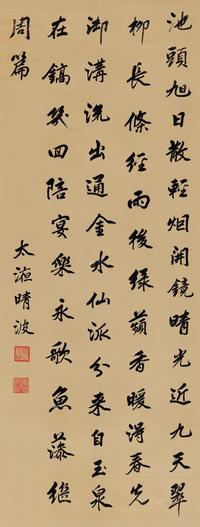 池頭旭日散輕烟開鏡晴光近九天翠
柳長條經雨後綠蘋香暖得春先
御溝流出通金水仙派分來自玉泉
在鎬幾回陪宴樂永歌魚藻繼
周篇
太液晴波